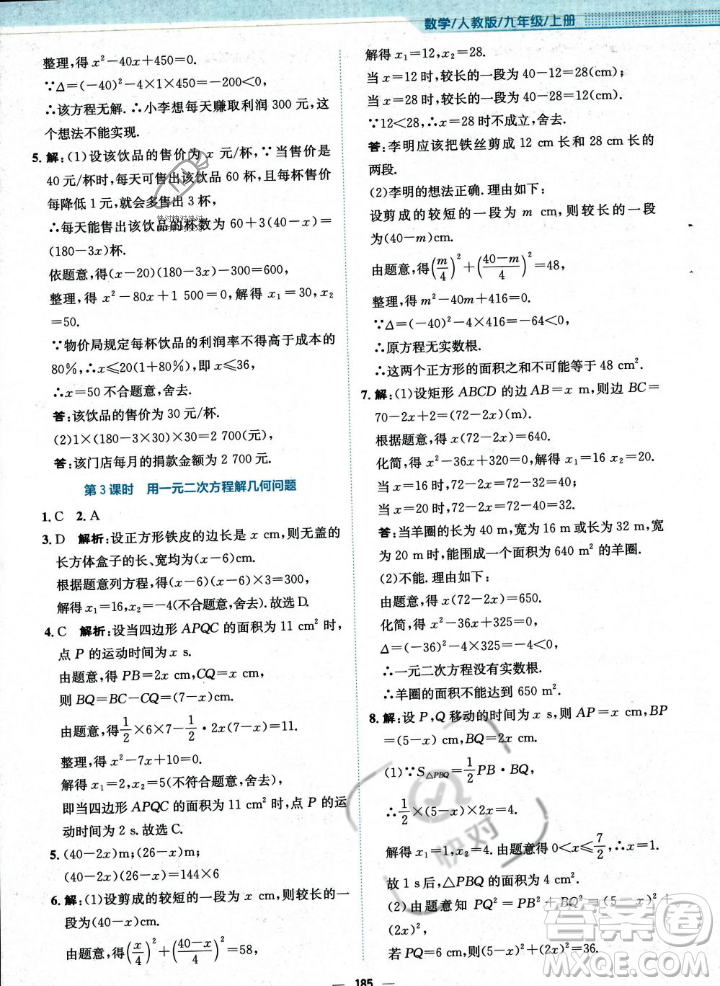 数学/人教版/九年级/上册
整理,得 x²-40x+450=0.
∵Δ=(-40)²-4×1×450=-200<0,
∴该方程无解.∴小李想每天赚取利润 300 元,这
个想法不能实现.
5. 解:(1)设该饮品的售价为 x 元/杯.∵当售价为
40 元/杯时,每天可售出该饮品 60 杯,且售价
每降低 1 元,就会多售出 3 杯,
∴每天能售出该饮品的杯数为 60+3(40-x)=
(180-3x)杯.
依题意,得(x-20)(180-3x)=600,
整理,得 x²-80x+1 500=0,解得 x₁=30,x₂
=50.
∵物价局规定每杯饮品的利润率不能超过
80%,∴x≤20(1+80%),∴x≤36,
∴x=50 不合题意,舍去.
答:该饮品的售价为 30 元/杯.
(2)1×(180-3×30)×30=2 700(元).
答:该门店每月的捐款金额为 2 700 元.
第 3 课时 用一元二次方程解几何问题
1. C 2. A
3. D 解析:设正方形铁皮的边长是 x cm,则无盖的
长方体盒子的长、宽均为(x-6)cm.
根据题意列方程,得(x-6)(x-6)×3=300,
解得 x₁=16,x₂=-4(不合题意,舍去).故选 D.
4. C 解析:设当四边形 APQC 的面积为 11 cm² 时,
点 P 的运动时间为 x s.
由题意,得 PB=(6-x)cm,BQ=2x cm,
则 BQ=BC-CQ=(7-x)cm.
由题意,得 1/2×6×7-1/2·2x(6-x)=11.
整理,得 x²-7x+10=0.
解得 x₁=2,x₂=5(不符合题意,舍去),
即当四边形 APQC 的面积为 11 cm² 时,点 P 的运
动时间为 2 s.故选 C.
5. (40-2x)m;(26-x)m;
(40-2x)(26-x)=144×6
6. 解:(1)设剪成的较短的一段为 x cm,则较长的一
段为(40-x)cm.
由题意,得(x/4)²+((40-x)/4)²=58,
解得 x₁=12,x₂=28.
当 x=12 时,较长的一段为 40-12=28(cm),
当 x=28 时,较长的一段为 40-28=12(cm).
∵12<28,∴x=28 时不成立,舍去.
∴李明应该把铁丝剪成 12 cm 和 28 cm 长的
两段.
(2)李明的想法正确.理由如下:
设剪成的较短的一段为 m cm,则较长的一段
为(40-m)cm.
由题意,得(m/4)²+((40-m)/4)²=48,
整理,得 m²-40m+416=0.
∵Δ=(-40)²-4×416=-64<0,
∴原方程无实数根.
∴这两个正方形的面积之和不可能等于 48 cm².
7. 解:(1)设矩形 ABCD 的边 AB=x m,则边 BC=
70-2x+2=(72-2x)(m).
根据题意,得 x(72-2x)=640,
化简,得 x²-36x+320=0.
解得 x₁=16,x₂=20.
当 x=16 时,72-2x=72-32=40;
当 x=20 时,72-2x=72-40=32.
答:当羊圈的长为 40 m,宽为 16 m 或长为 32 m,
宽为 20 m 时,能围成一个面积为 640 m² 的羊圈.
(2)不能.理由如下:
由题意,得 x(72-2x)=650.
化简,得 x²-36x+325=0.
Δ=(-36)²-4×325=-4<0,
∴一元二次方程没有实数根.
∴羊圈的面积不能达到 650 m².
8. 解:设 P,Q 移动的时间为 x s,则 AP=x cm,BP
=(5-x)cm,BQ=2x cm.
(1)∵S△PBQ=1/2PB·BQ,
∴1/2×(5-x)×2x=4.
解得 x₁=1,x₂=4.由题意得 0≤x≤7/2,∴x=1.
故 1 s后,△PBQ 的面积为 4 cm².
(2)由题意,得 PQ²=PB²+BQ²=(5-x)²+
(2x)².
若 PQ=6 cm,则(5-x)²+(2x)²=36.
185
答案圈
MXQE.COM